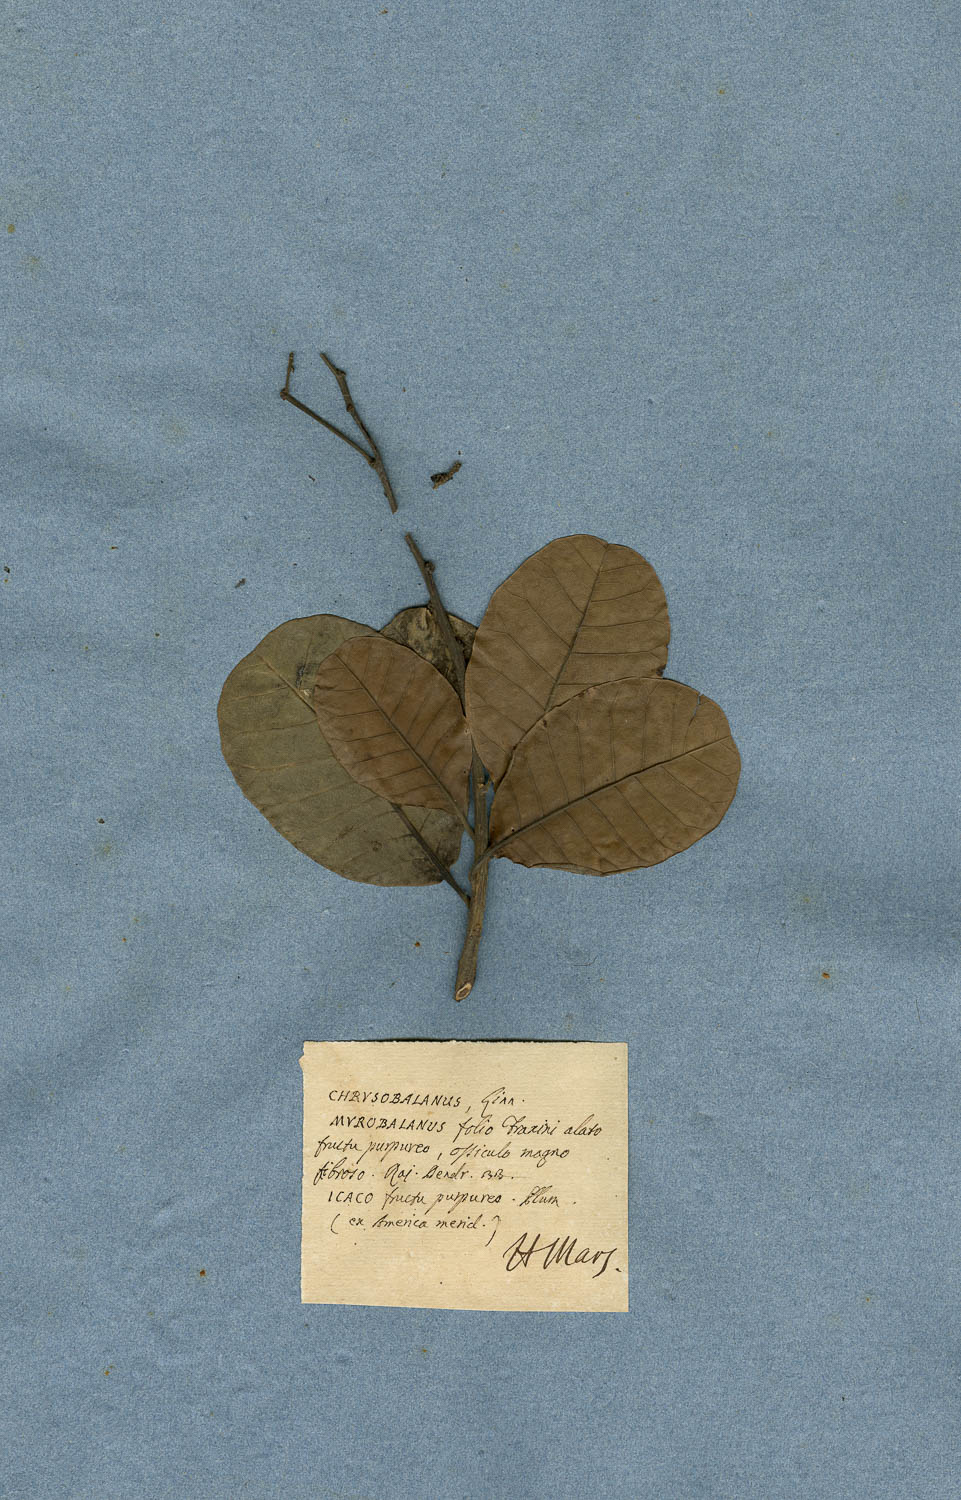 CHRYSOBALANUS, Linn.
MYROBALANUS folio Fraxini alato
fructu purpureo, ossiculo magno
fibroso. Raj. Dendr.
ICACO fructu purpureo. Plum.
(ex America merid.)